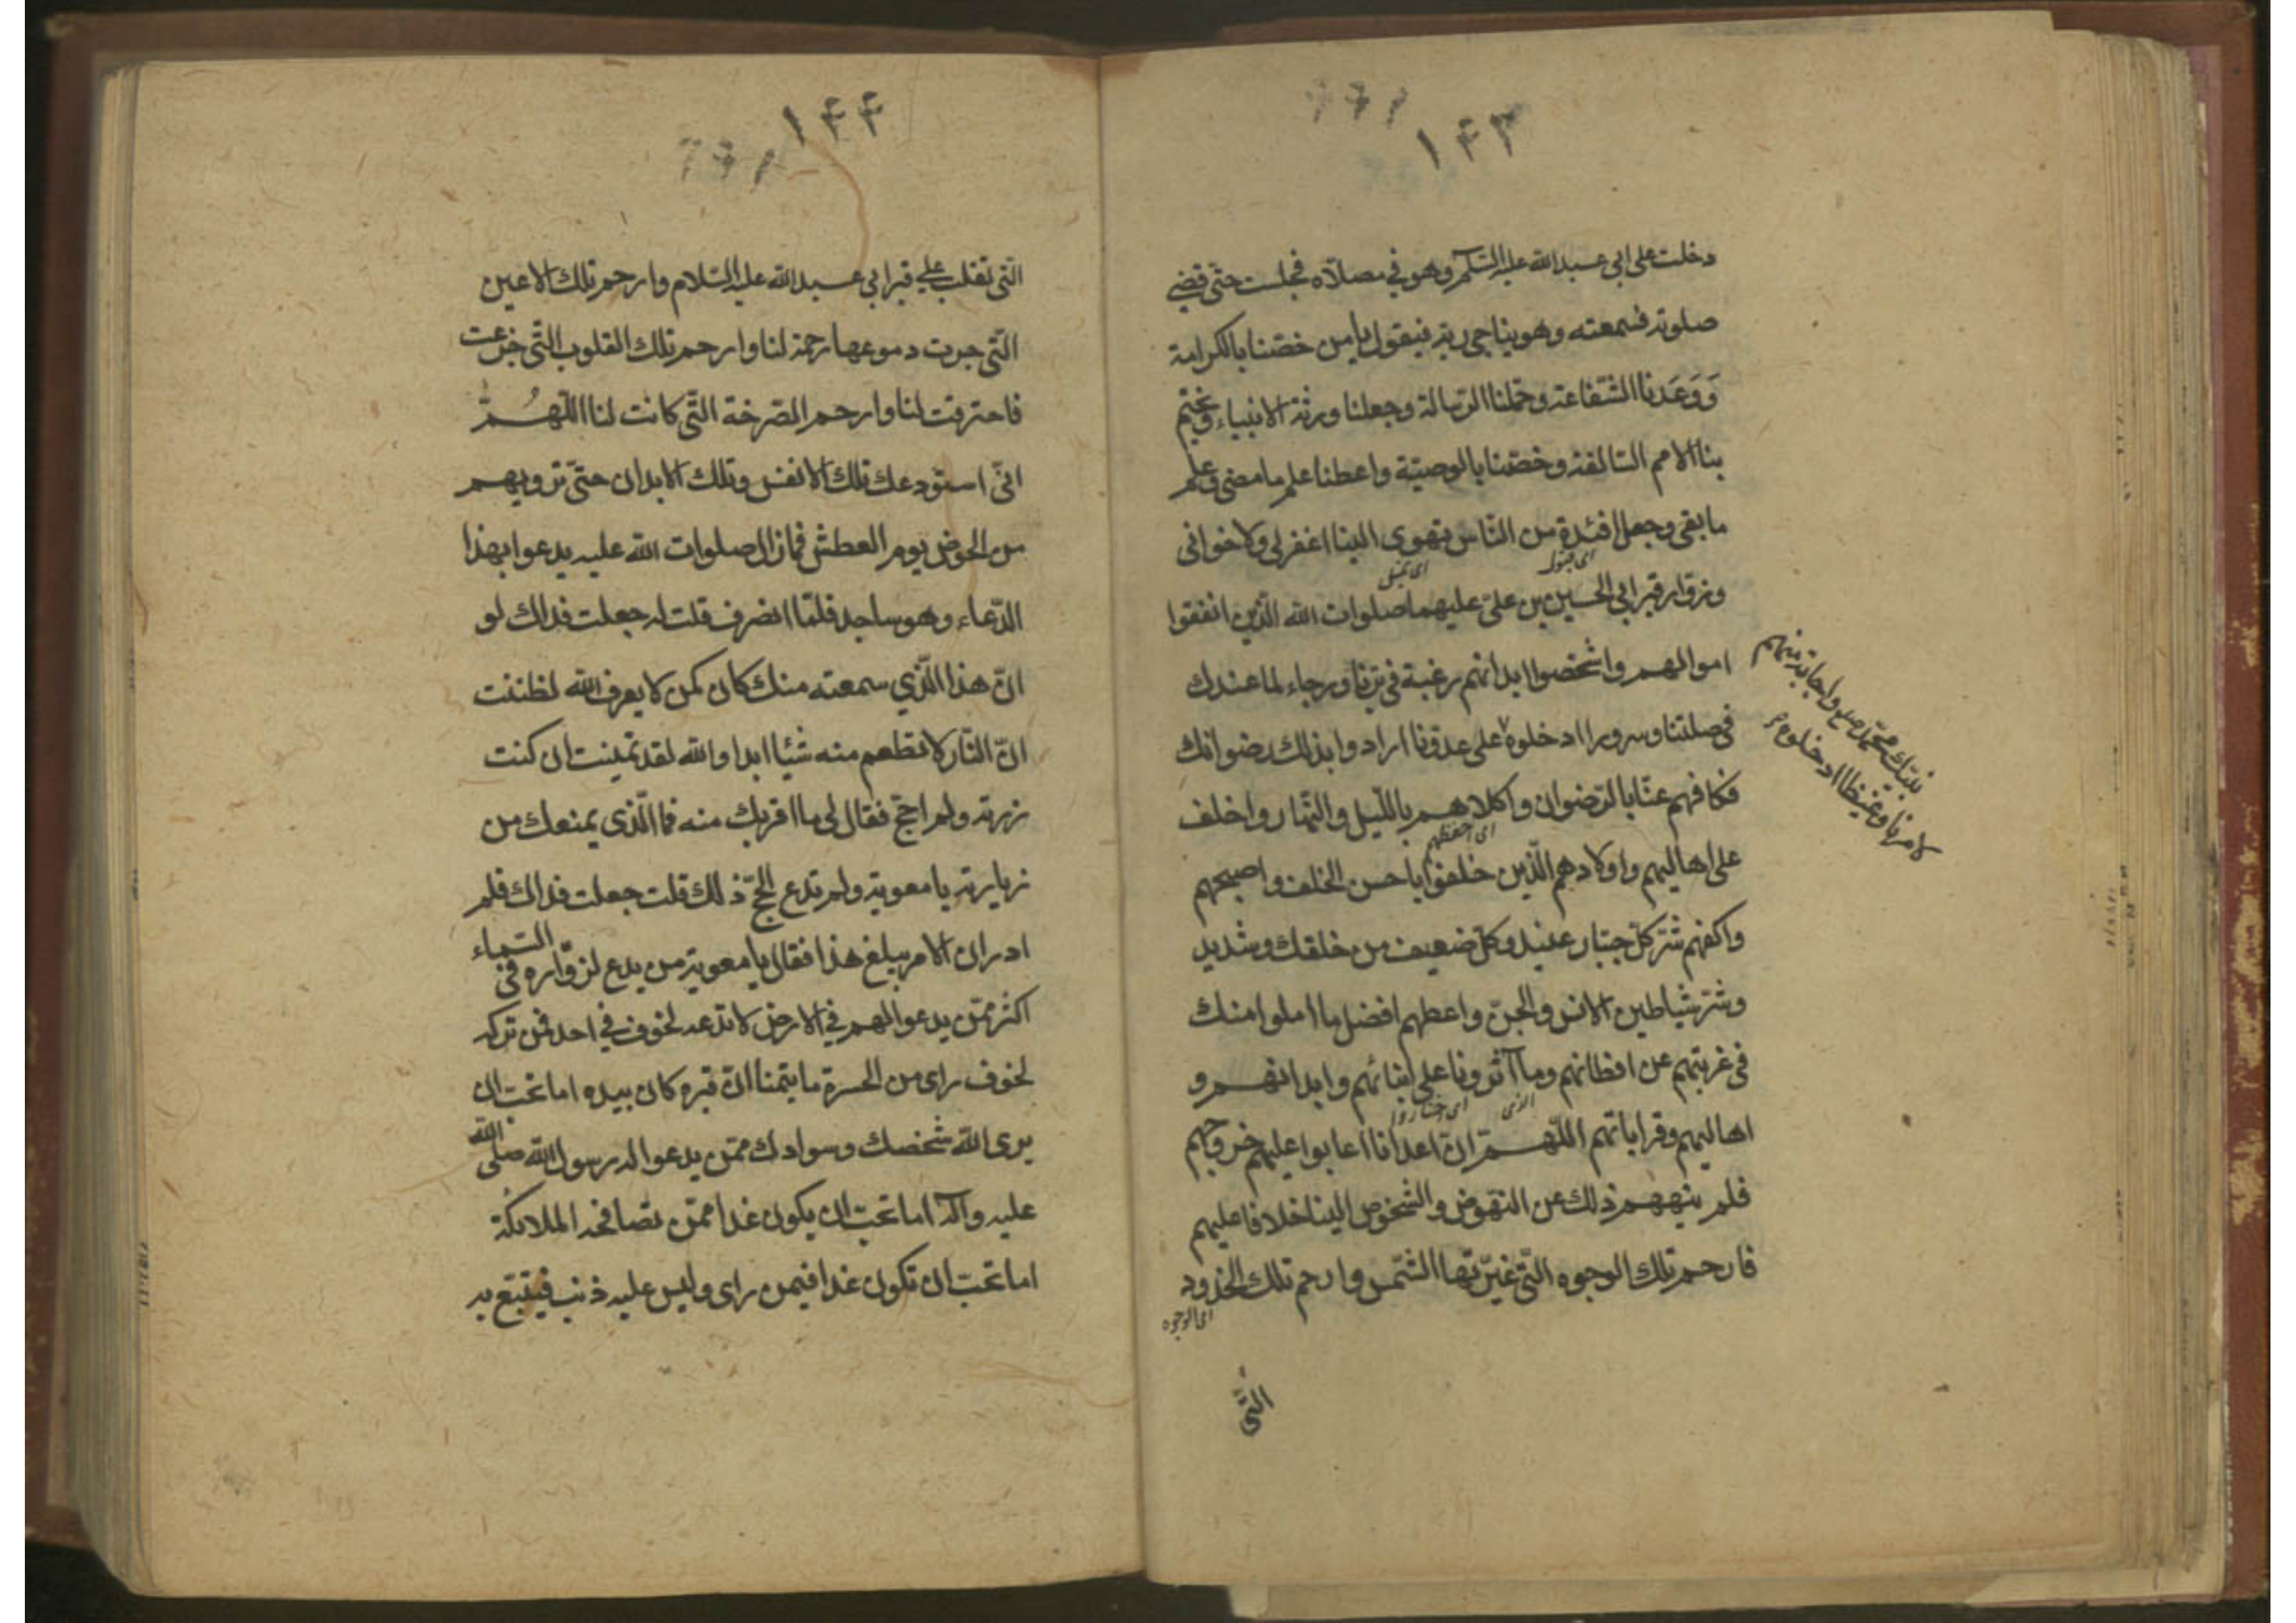 ١٤٣
دخلت على ابي عبدالله عليه السّلام وهو في مصلّاه فجلست حتّى قضى
صلوته فسمعته وهو يناجي ربّه فيقول يا من خصّنا بالكرامة
وَوَعَدنا الشّفاعة وحمّلنا الرّسالة وجعلنا ورثة الانبياء وختم
بنا الامم السّالفة وخصّنا بالوصيّة واعطنا علم ما مضى وعلم
ما بقى وجعل افئدة من النّاس تهوى الينا اغفر لى ولاخوانى
اى تميل
وزوّار قبر ابي الحسين بن علىّ عليهما صلوات الله الّذين انفقوا
اموالهم واشخصوا ابدانهم رغبة فى برّنا ورجاء لما عندك
فى صلتنا وسرورا ادخلوه على عدوّنا ارادوا بذلك رضوانك
نبيّك محمّد صلع واجابة منهم
لامرنا وغيظا ادخلوه
فكافهم عنّا بالرّضوان واكلاهم باللّيل والنّهار واخلف
اى احفظهم
على اهاليهم واولادهم الّذين خلفوا باحسن الخلف واصبحهم
واكفهم شرّ كلّ جبّار عنيد وكلّ ضعيف من خلقك وشديد
وشرّ شياطين الانس والجنّ واعطهم افضل ما املوا منك
فى غربتهم عن اوطانهم وما آثرونا على ابنائهم وابدانهم و
اى اختاروا
اهاليهم وقراباتهم اللّهمّ انّ اعدانا اعابوا عليهم خروجهم
فلم ينههم ذلك عن النّهوض والشّخوص الينا خلافا عليهم
فارحم تلك الوجوه الّتى غيّرتها الشّمس وارحم تلك الخدود
اى الوجوه
الّتى
١٤٤
الّتى تقلب على قبر ابي عبدالله عليه السّلام وارحم تلك الاعين
الّتى جرت دموعها رحمة لنا وارحم تلك القلوب الّتى جزعت
فاحترقت لنا وارحم الصّرخة الّتى كانت لنا اللّهُمَّ
انّى استودعك تلك الانفس وتلك الابدان حتّى ترويهم
من الحوض يوم العطش فما زال صلوات الله عليه يدعوا بهذا
الدّعاء وهو ساجد فلمّا انصرف قلت له جعلت فداك لو
انّ هذا الّذي سمعته منك كان كمن لا يعرف الله لظننت
انّ النّار لا تطعم منه شيئا ابدا والله لقد تمنّيت ان كنت
زرته ولم احجّ فقال لى ما اقربك منه فما الّذى يمنعك من
زيارته يا معوية ولم تدع الحجّ ذلك قلت جعلت فداك فلم
ادر انّ الامر يبلغ هذا فقال يا معوية من يدع لزوّاره فى السّماء
اكثر ممّن يدعوا لهم فى الارض لا تدعه لخوف فى احد فمن تركه
لخوف راى من الحسرة ما يتمنا انّ قبره كان بيده اما تحبّ ان
يرى الله شخصك وسوادك ممّن يدعوا له رسول الله صلى الله
عليه وآله اما تحبّ ان يكون غدا ممّن تصافحه الملائكة
اما تحبّ ان تكون غدا فيمن راى وليس عليه ذنب فيتبّع به